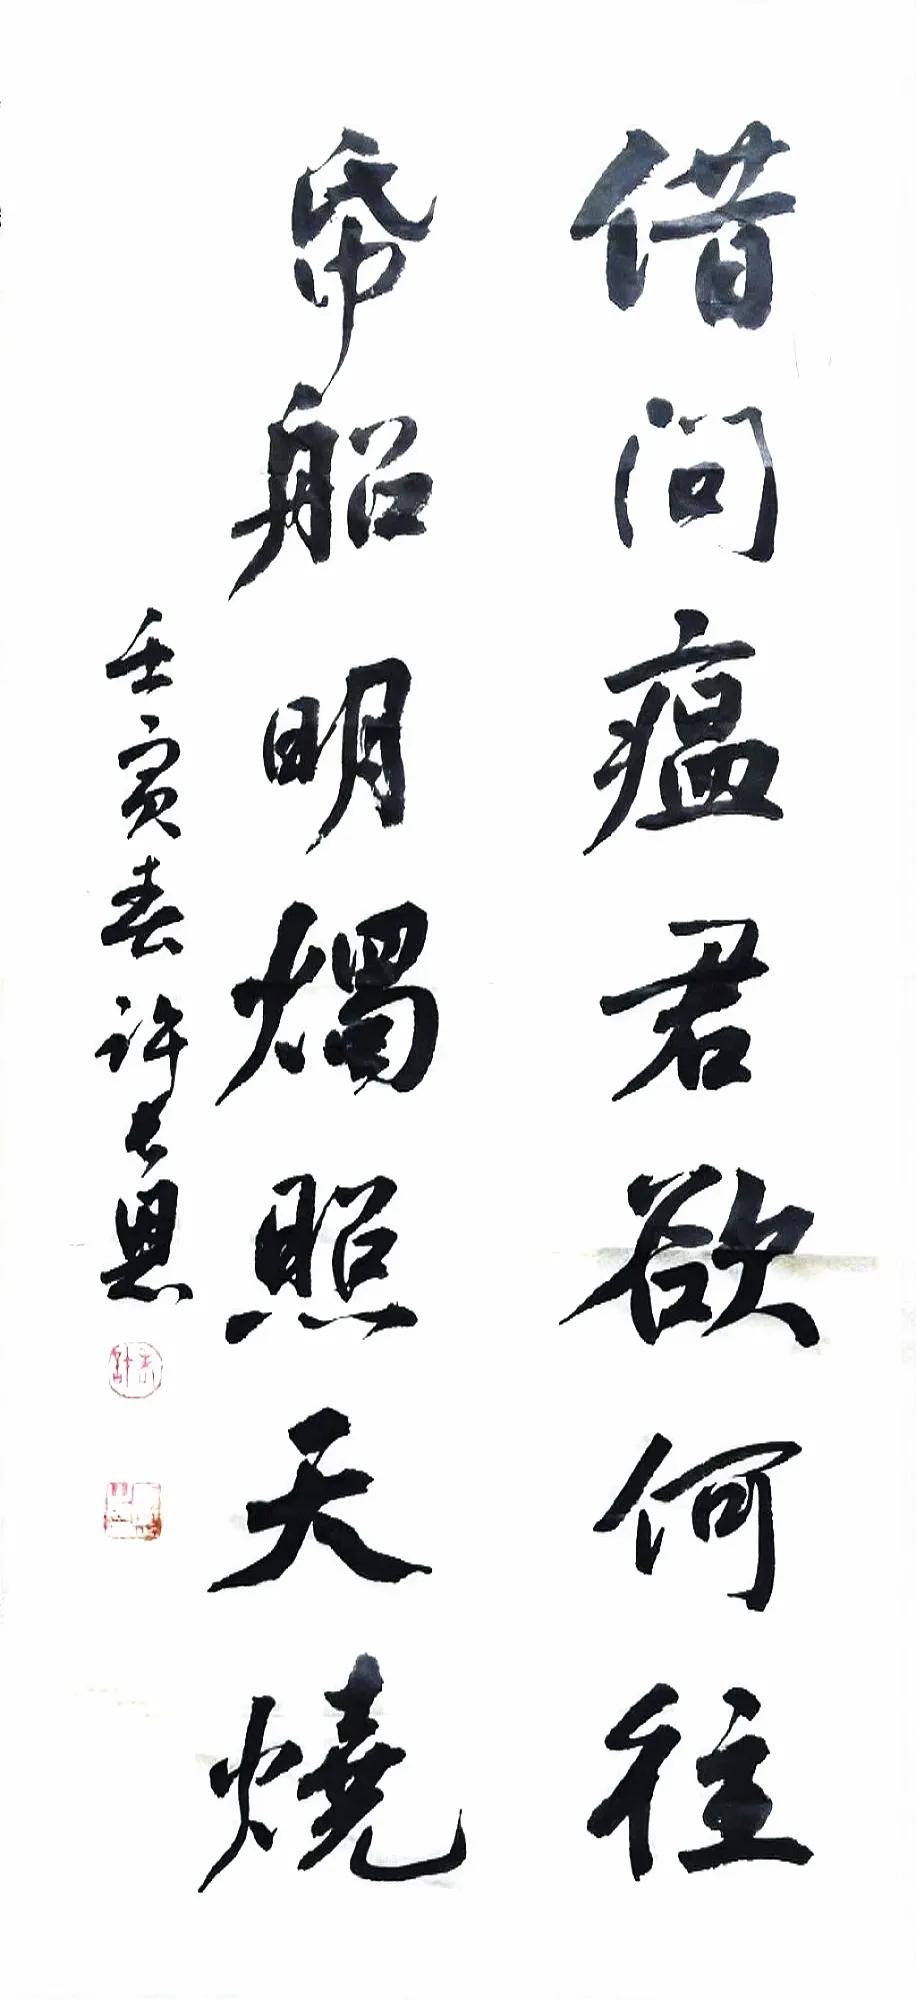 借问瘟君欲何往
帋船明燭照天燒
壬寅春许长恩